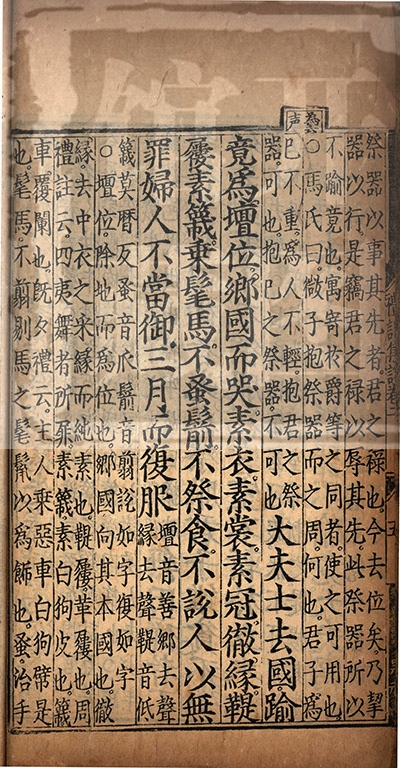 為去声
祭器以事其先者君之祿也今去位矣乃挈
器以行是竊君之祿以辱其先此祭器所以
不踰竟也寓寄於爵等之同者使之可用也
○馬氏曰微子抱祭器而之周何也君子為
已不重為人不輕抱君之祭
器可也抱已之祭器不可也大夫士去國踰
竟為壇位鄉國而哭素衣素裳素冠徹緣鞮
屨素簚乘髦馬不蚤鬋不祭食不說人以無
罪婦人不當御三月而復服壇音善鄉去聲
緣去聲鞮音低
簚莫暦反蚤音爪鬋音翦說如字復如字
○壇位除地而為位也鄉國向其本國也徹
緣去中衣之采緣而純素也鞮屨革屨也周
禮註云四夷舞者所屝素簚素白狗皮也簚
車覆闌也既夕禮云主人乘惡車白狗幦是
也髦馬不翦剔馬之髦鬛以為飾也蚤治手